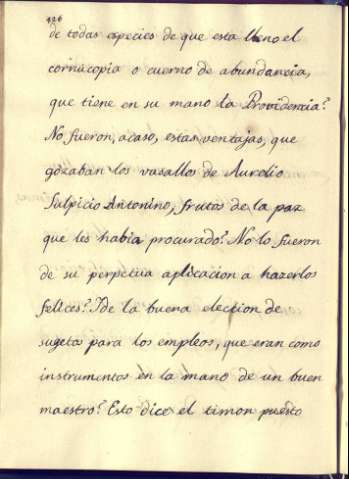 426
de todas especies de que esta lleno el
cornucopia o cuerno de abundancia,
que tiene en su mano la Providencia?
No fueron, acaso, estas ventajas, que
gozaban los vasallos de Aurelio
Sulpicio Antonino, frutos de la paz
que les habia procurado? No lo fueron
de su perpetua aplicacion a hazerlos
felices? De la buena eleccion de
sugetos para los empleos, que eran como
instrumentos en la mano de un buen
maestro? Esto dice el timon puesto